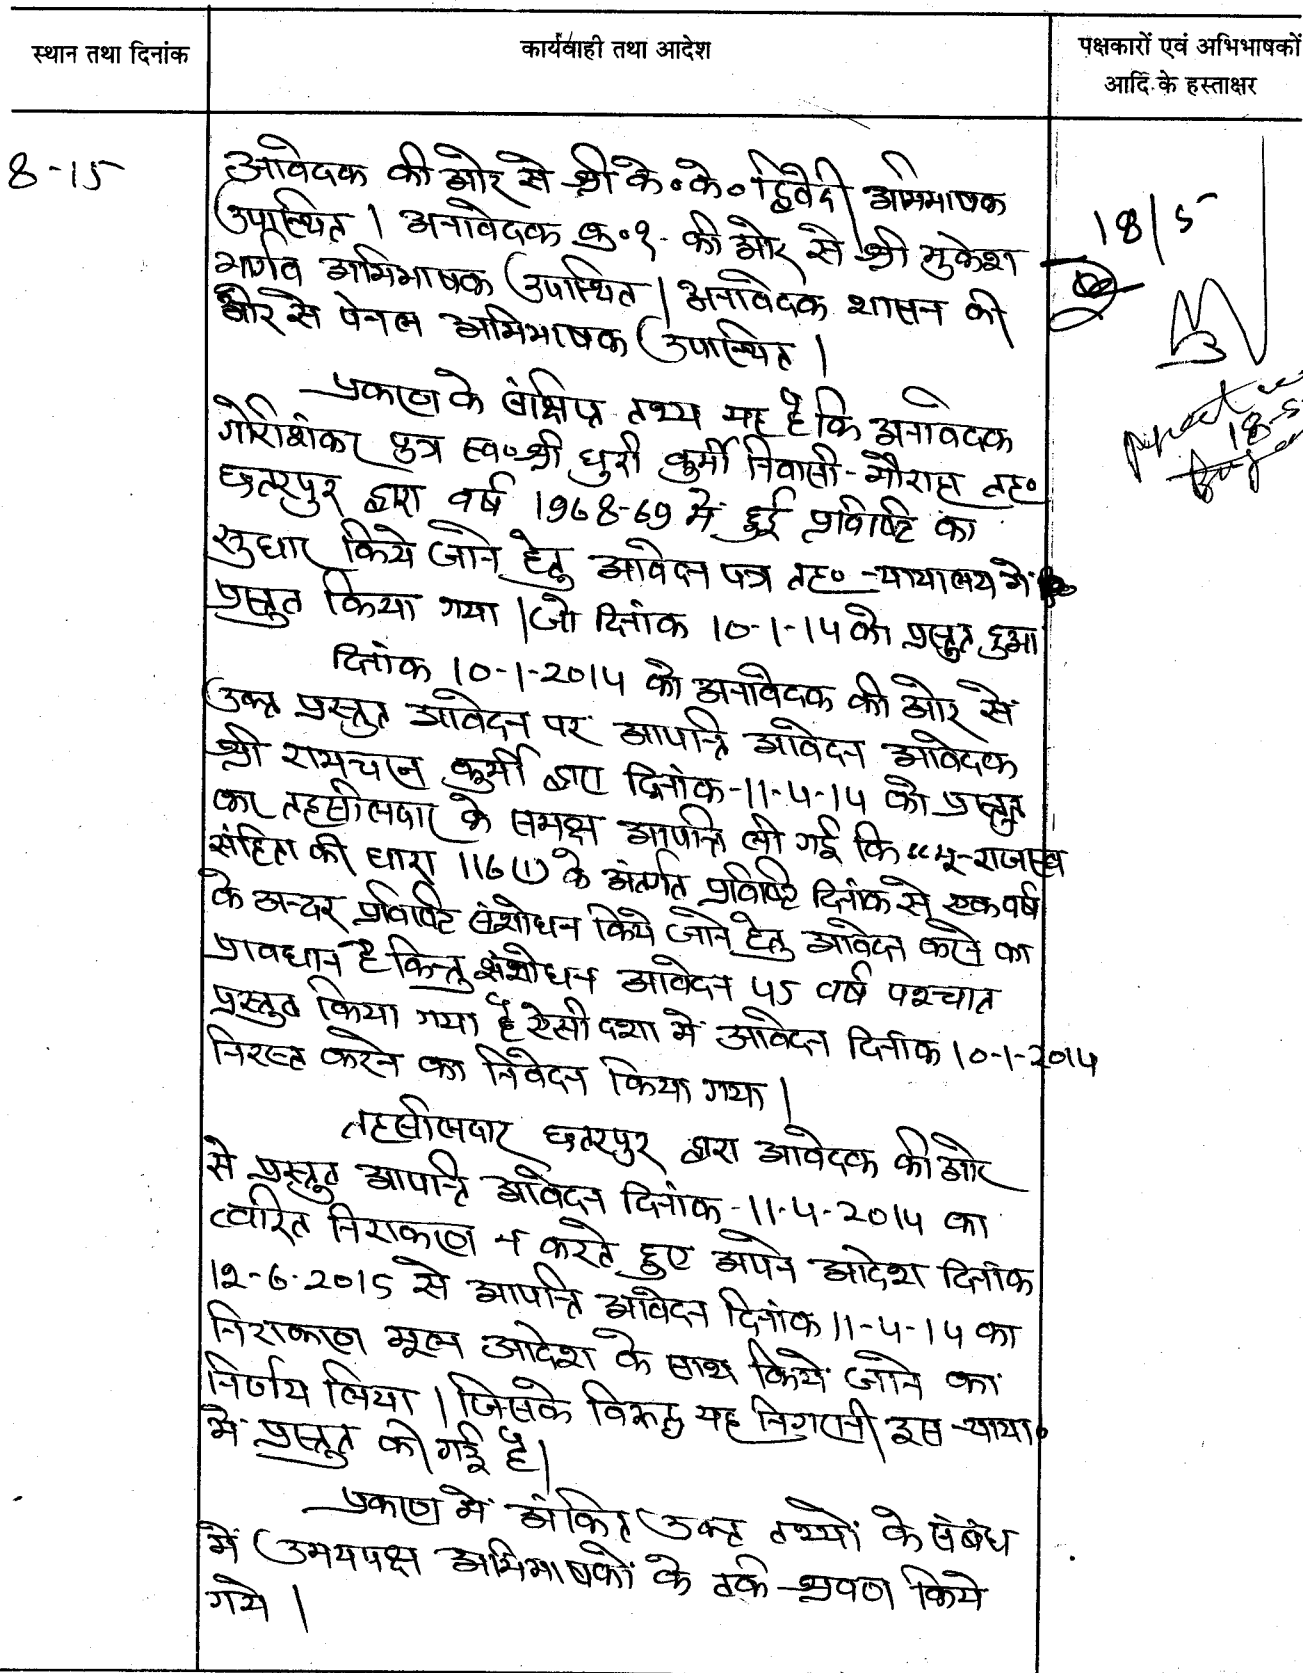 स्थान तथा दिनांक
कार्यवाही तथा आदेश
पक्षकारों एवं अभिभाषकों
आदि के हस्ताक्षर
8-15
आवेदक की ओर से श्री के०के० द्विवेदी अभिभाषक
उपस्थित । अनावेदक क्र०१- की ओर से श्री मुकेश
भार्गव अभिभाषक उपस्थित । अनावेदक शासन की
ओर से पेनल अभिभाषक उपस्थित ।
प्रकरण के संक्षिप्त तथ्य यह है कि अनावेदक
गोरीशंकर पुत्र स्व०श्री धुरी कुर्मी निवासी-मौराहा तह०
छतरपुर द्वारा वर्ष 1968-69 में हुई प्रविष्टि का
सुधार किये जाने हेतु आवेदन पत्र तह० न्यायालय में
प्रस्तुत किया गया । जो दिनांक 10-1-14 को प्रस्तुत हुआ
दिनांक 10-1-2014 को अनावेदक की ओर से
उक्त प्रस्तुत आवेदन पर आपत्ति आवेदन आवेदक
श्री रामचरन कुर्मी द्वारा दिनांक-11-4-14 को प्रस्तुत
कर तहसीलदार के समक्ष आपत्ति ली गई कि "भू-राजस्व
संहिता की धारा 116(1) के अंतर्गत प्रविष्टि दिनांक से एक वर्ष
के अन्दर प्रविष्टि संशोधन किये जाने हेतु आवेदन करने का
प्रावधान है किन्तु संशोधन आवेदन 45 वर्ष पश्चात
प्रस्तुत किया गया है ऐसी दशा में आवेदन दिनांक 10-1-2014
निरस्त करने का निवेदन किया गया ।
तहसीलदार छतरपुर द्वारा आवेदक की ओर
से प्रस्तुत आपत्ति आवेदन दिनांक-11-4-2014 का
त्वरित निराकरण न करते हुए अपने आदेश दिनांक
12-6-2015 से आपत्ति आवेदन दिनांक 11-4-14 का
निराकरण मूल आदेश के साथ किये जाने का
निर्णय लिया । जिसके विरूद्ध यह निगरानी इस न्याया०
में प्रस्तुत की गई है।
प्रकरण में अंकित उक्त तथ्यों के संबंध
में उभयपक्ष अभिभाषकों के तर्क श्रवण किये
गये ।
18/5
18-5